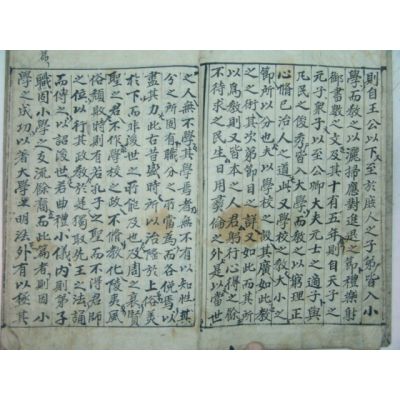 則自王公以下至於庶人之子弟皆入小
學而教之以灑掃應對進退之節禮樂射
御書數之文及其十有五年則自天子之
元子衆子以至公卿大夫元士之適子與
凡民之俊秀皆入大學而教之以窮理正
心脩己治人之道此又學校之教大小之
節所以分也夫以學校之設其廣如此教
之之術其次第節目詳又如此而其所
以爲教則又皆本之人君躬行心得之餘
不待求之民生日用彝倫之外是以當世
之人無不學其學焉者無不有以知性其
分之所固有職分之所當爲而各俛焉以
盡其力此古昔盛時所以治隆於上俗美
於下而非後世之所能及也及周之衰賢
聖之君不作學校之政不脩教化陵夷風
俗頹敗時則有若孔子之聖而不得君師
之位以行其政教於是獨取先王之法誦
而傳之以詔後世若曲禮小儀內則弟子
職固小學之支流餘裔而此篇者則因小
學之成功以著大學之明法外有以極其